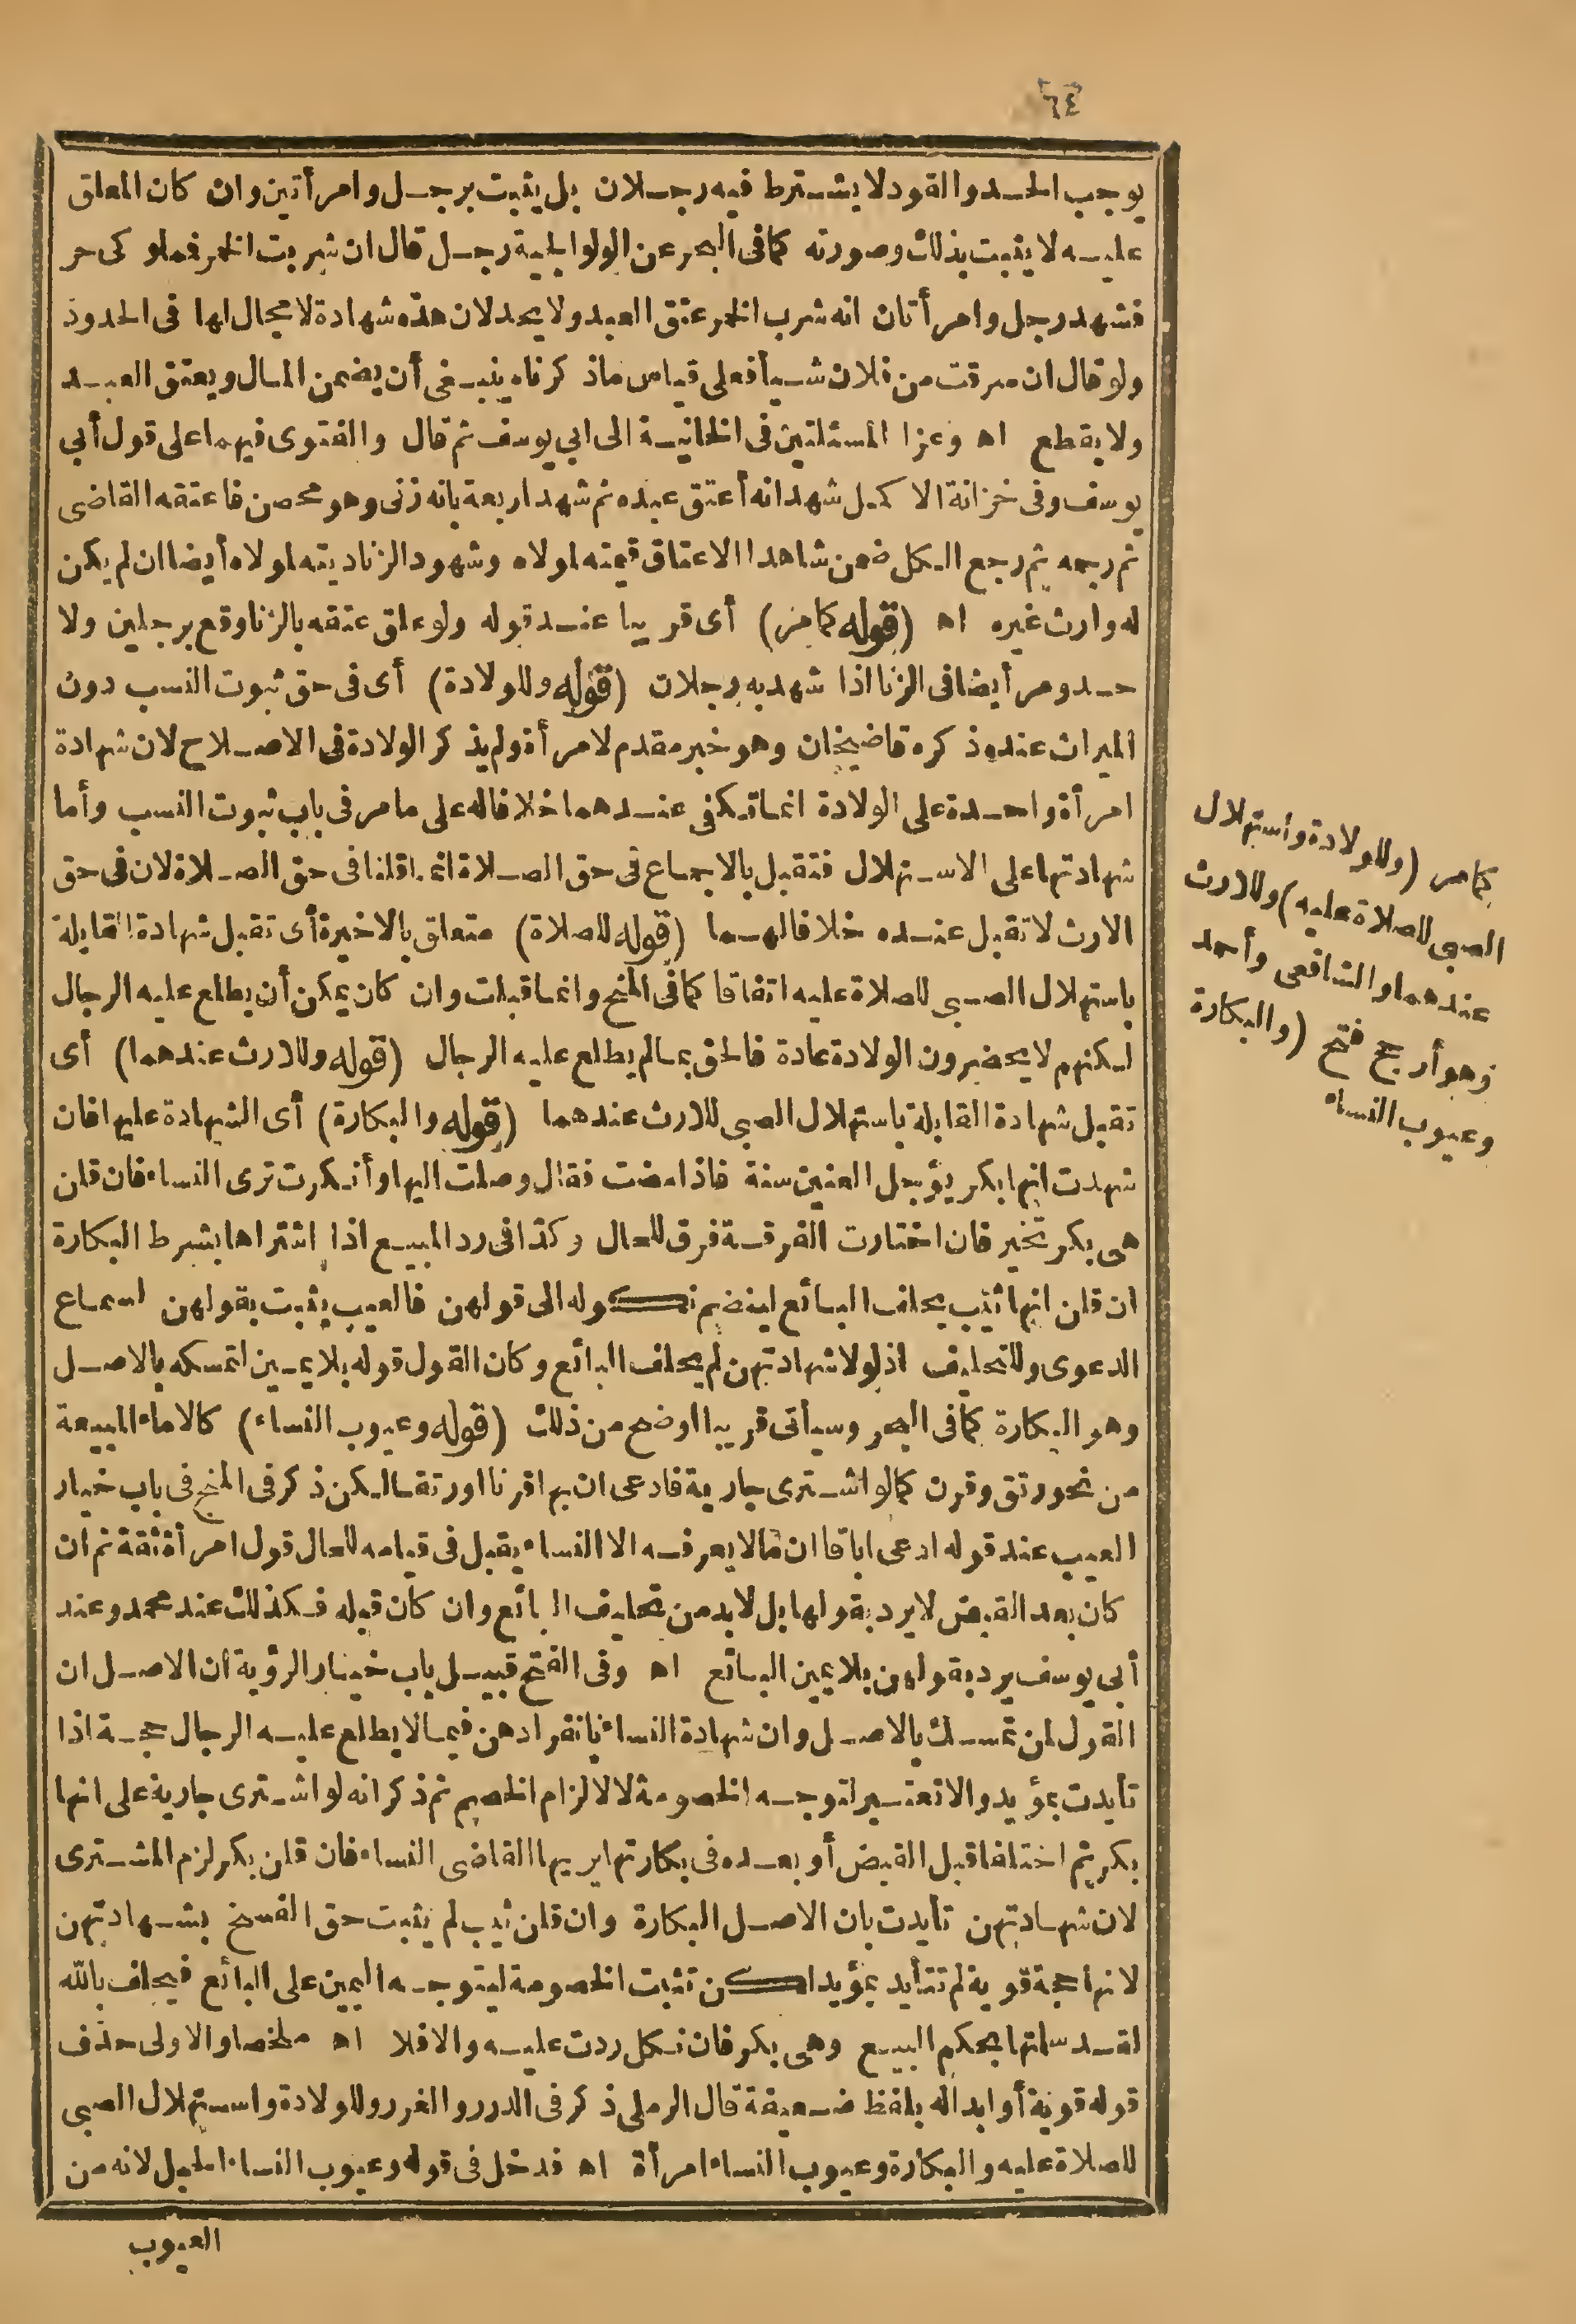 ٦٤
يوجب الحد والقود لا يشترط فيه رجلان بل يثبت برجل وامرأتين وان كان المعلق
عليه لا يثبت بذلك وصورته كما فى البحر عن الولوالجية رجل قال ان شربت الخمر فمملوكى حر
فشهد رجل وامرأتان انه شرب الخمر عتق العبد ولا يحد لان هذه شهادة لا مجال لها فى الحدود
ولو قال ان سرقت من فلان شيأ فعلى قياس ما ذكرناه ينبغى أن يضمن المال ويعتق العبد
ولا يقطع اه وعزا المسئلتين فى الخانية الى ابى يوسف ثم قال والفتوى فيهما على قول أبى
يوسف وفى خزانة الاكمل شهدا انه أعتق عبده ثم شهد اربعة بانه زنى وهو محصن فاعتقه القاضى
ثم رجمه ثم رجع الكل ضمن شاهدا الاعتاق قيمته لمولاه وشهود الزنا ديته لمولاه أيضا ان لم يكن
له وارث غيره اه (قوله كما مر) أى قريبا عند قوله ولو علق عتقه بالزنا وقع برجلين ولا
حد ومر أيضا فى الزنا اذا شهد به رجلان (قوله وللولادة) أى فى حق ثبوت النسب دون
الميراث عنده ذكره قاضيخان وهو خبر مقدم لامرأة ولم يذكر الولادة فى الاصلاح لان شهادة
امرأة واحدة على الولادة انما تكفى عندهما خلافا له على ما مر فى باب ثبوت النسب وأما
شهادتها على الاستهلال فتقبل بالاجماع فى حق الصلاة انما قلنا فى حق الصلاة لان فى حق
الارث لا تقبل عنده خلافا لهما (قوله للصلاة) متعلق بالاخيرة أى تقبل شهادة القابلة
باستهلال الصبى للصلاة عليه اتفاقا كما فى المنح وانما قبلت وان كان يمكن أن يطلع عليه الرجال
لكنهم لا يحضرون الولادة عادة فالحق بما لم يطلع عليه الرجال (قوله وللارث عندهما) أى
تقبل شهادة القابلة باستهلال الصبى للارث عندهما (قوله والبكارة) أى الشهادة عليها فان
شهدت انها بكر يؤجل العنين سنة فاذا مضت فقال وصلت اليها وأنكرت ترى النساء فان قلن
هى بكر تخير فان اختارت الفرقة فرق للحال وكذا فى رد المبيع اذا اشتراها بشرط البكارة
ان قلن انها ثيب يحلف البائع لينضم نكوله الى قولهن فالعيب يثبت بقولهن لسماع
الدعوى وللتحليف اذ لولا شهادتهن لم يحلف البائع وكان القول قوله بلا يمين لتمسكه بالاصل
وهو البكارة كما فى البحر وسيأتى قريبا اوضح من ذلك (قوله وعيوب النساء) كالاماء المبيعة
من نحو رتق وقرن كما لو اشترى جارية فادعى ان بها قرنا او رتقا لكن ذكر فى المنح فى باب خيار
العيب عند قوله ادعى اباقا ان ما لا يعرفه الا النساء يقبل فى قيامه للحال قول امرأة ثقة ثم ان
كان بعد القبض لا يرد بقولها بل لا بد من تحليف البائع وان كان قبله فكذلك عند محمد وعند
أبى يوسف يرد بقولهن بلا يمين البائع اه وفى الفتح قبيل باب خيار الرؤية ان الاصل ان
القول لمن تمسك بالاصل وان شهادة النساء بانفرادهن فيما لا يطلع عليه الرجال حجة اذا
تأيدت بمؤيد والا تعتبر لتوجه الخصومة لا لالزام الخصم ثم ذكر انه لو اشترى جارية على انها
بكر ثم اختلفا قبل القبض أو بعده فى بكارتها يريها القاضى النساء فان قلن بكر لزم المشترى
لان شهادتهن تأيدت بان الاصل البكارة وان قلن ثيب لم يثبت حق الفسخ بشهادتهن
لانها حجة قوية لم تتأيد بمؤيد لكن تثبت الخصومة ليتوجه اليمين على البائع فيحلف بالله
لقد سلمتها بحكم البيع وهى بكر فان نكل ردت عليه والا فلا اه ملخصا والاولى حذف
قوله قوية أو ابداله بلفظ ضعيفة قال الرملى ذكر فى الدرر والغرر وللولادة واستهلال الصبى
للصلاة عليه والبكارة وعيوب النساء امرأة اه فدخل فى قوله وعيوب النساء الحبل لانه من
العيوب
كما مر (وللولادة واستهلال
الصبى للصلاة عليه) وللارث
عندهما والشافعى وأحمد
وهو أرجح فتح (والبكارة
وعيوب النساء